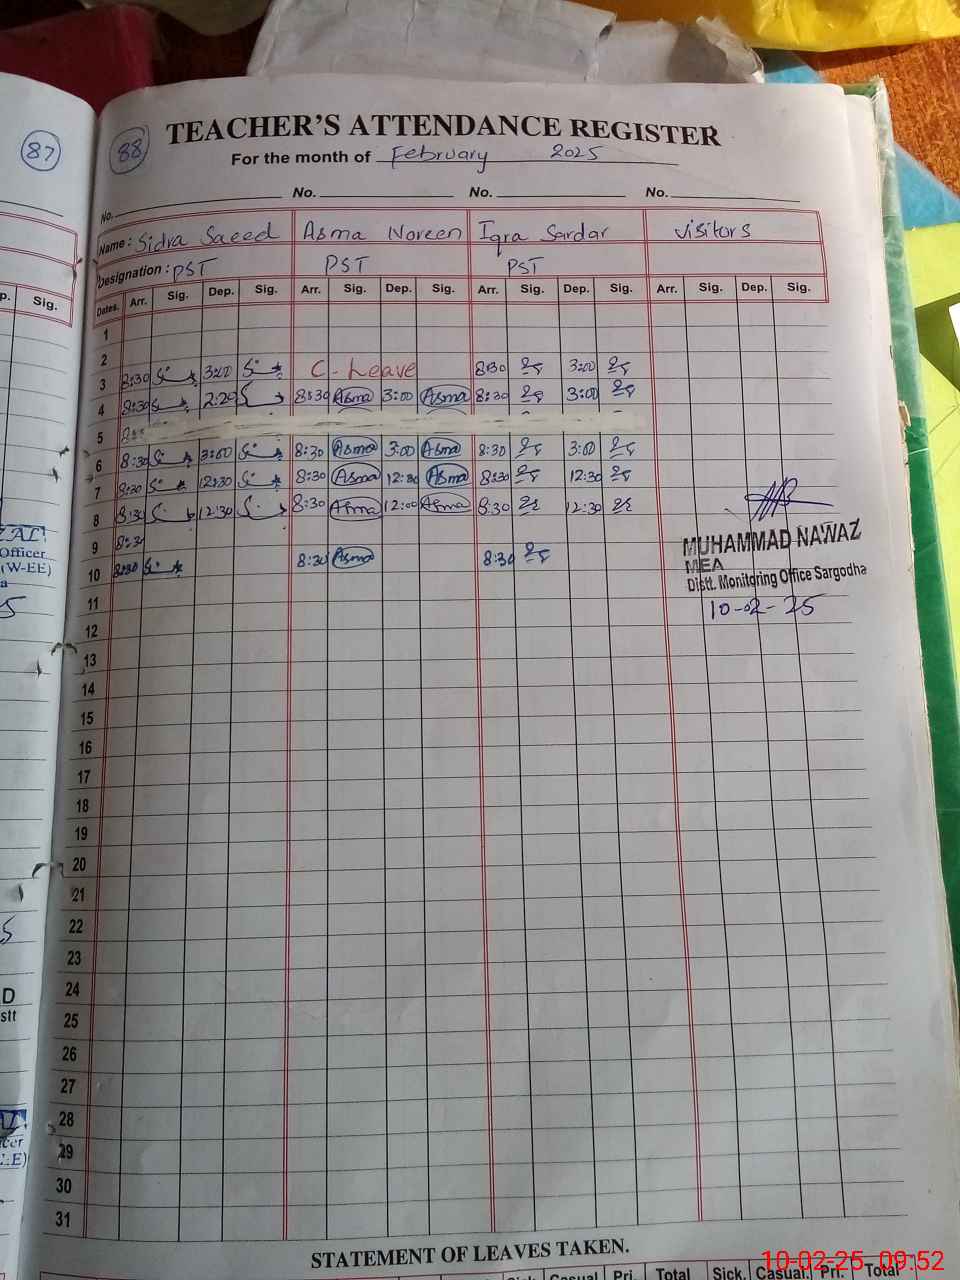 87
88
TEACHER'S ATTENDANCE REGISTER
For the month of February 2025
No. No. No. No.
Name: Sidra Saeed Asma Noreen Iqra Sardar visitors
Designation: PST PST PST
p. Sig. Dates. Arr. Sig. Dep. Sig. Arr. Sig. Dep. Sig. Arr. Sig. Dep. Sig. Arr. Sig. Dep. Sig.
1
2
3 8:30 3:00 C-Leave 8:30 3:00
4 8:30 2:20 8:30 Asma 3:00 Asma 8:30 3:00
5
6 8:30 3:00 8:30 Asma 3:00 Asma 8:30 3:00
7 8:30 12:30 8:30 Asma 12:30 Asma 8:30 12:30
8 8:30 12:30 8:30 Asma 12:00 Asma 8:30 12:30
9 8:30
10 8:30 8:30 Asma 8:30
MUHAMMAD NAWAZ
MEA
Distt. Monitoring Office Sargodha
10-02-25
Officer
(W-EE)
11
12
13
14
15
16
17
18
19
20
21
22
23
24
25
26
27
28
29
30
31
STATEMENT OF LEAVES TAKEN.
Sick. Casual. Pri. Total Sick. Casual. Pri. Total
10-02-25 09:52